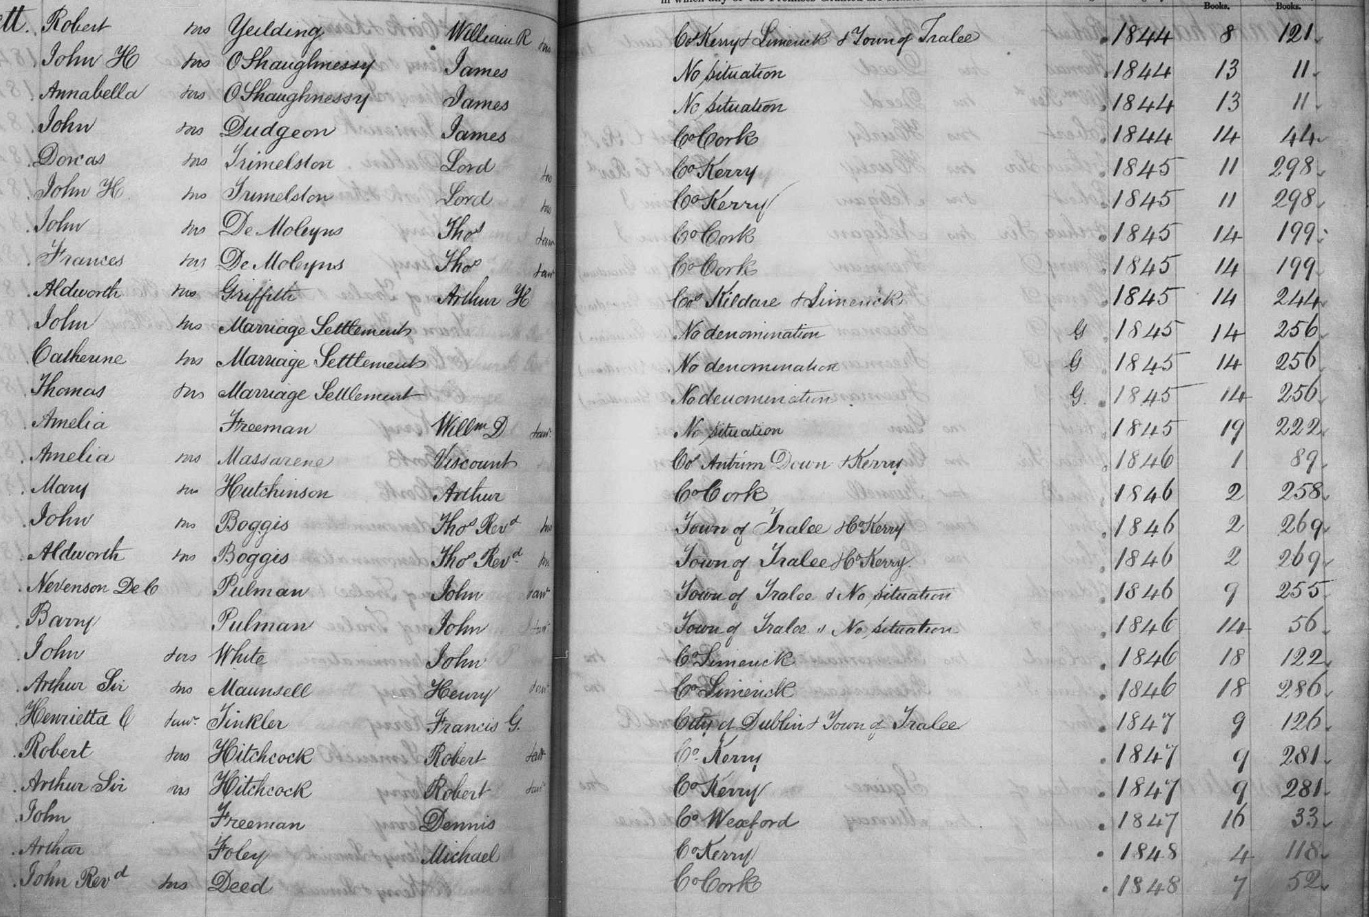 in which any of the Premises situated are
Books. Books.
ett. Robert ors Yeilding William R ors Co Kerry & Limerick & Town of Tralee 1844 8 121
John H ors OShaughnessy James No situation 1844 13 11
Annabella ors OShaughnessy James No situation 1844 13 11
John ors Dudgeon James Co Cork 1844 14 44
Dorcas ors Trimelston Lord ors Co Kerry 1845 11 298
John H. ors Trimelston Lord ors Co Kerry 1845 11 298
John ors De Moleyns Thos Co Cork 1845 14 199
Frances ors De Moleyns Thos Co Cork 1845 14 199
Aldworth ors Griffith Arthur H Cos Kildare & Limerick 1845 14 244
John ors Marriage Settlement No denomination G 1845 14 256
Catherine ors Marriage Settlement No denomination G 1845 14 256
Thomas ors Marriage Settlement No denomination G. 1845 14 256
Amelia Freeman Willm D No situation 1845 19 222
Amelia ors Massarene Viscount Cos Antrim Down & Kerry 1846 1 89
Mary ors Hutchinson Arthur Co Cork 1846 2 258
John ors Boggis Thos Revd ors Town of Tralee & Co Kerry 1846 2 269
Aldworth ors Boggis Thos Revd ors Town of Tralee & Co Kerry 1846 2 269
Nevenson De C Pulman John Town of Tralee & No situation 1846 9 255
Barry Pulman John Town of Tralee & No situation 1846 14 56
John ors White John Co Limerick 1846 18 122
Arthur Sir ors Maunsell Henry Co Limerick 1846 18 286
Henrietta C Tinkler Francis G. City of Dublin & Town of Tralee 1847 9 126
Robert ors Hitchcock Robert Co Kerry 1847 9 281
Arthur Sir ors Hitchcock Robert Co Kerry 1847 9 281
John Freeman Dennis Co Wexford 1847 16 33
Arthur Foley Michael Co Kerry 1848 4 118
John Revd ors Deed Co Cork 1848 7 52